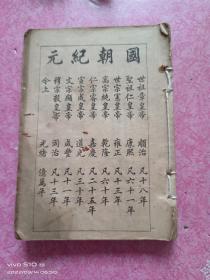 國朝紀元
世祖章皇帝 順治 凡十八年
聖祖仁皇帝 康熙 凡六十一年
世宗憲皇帝 雍正 凡十三年
高宗純皇帝 乾隆 凡六十年
仁宗睿皇帝 嘉慶 凡二十五年
宣宗成皇帝 道光 凡三十年
文宗顯皇帝 咸豐 凡十一年
穆宗毅皇帝 同治 凡十三年
今上 光緒 億萬年